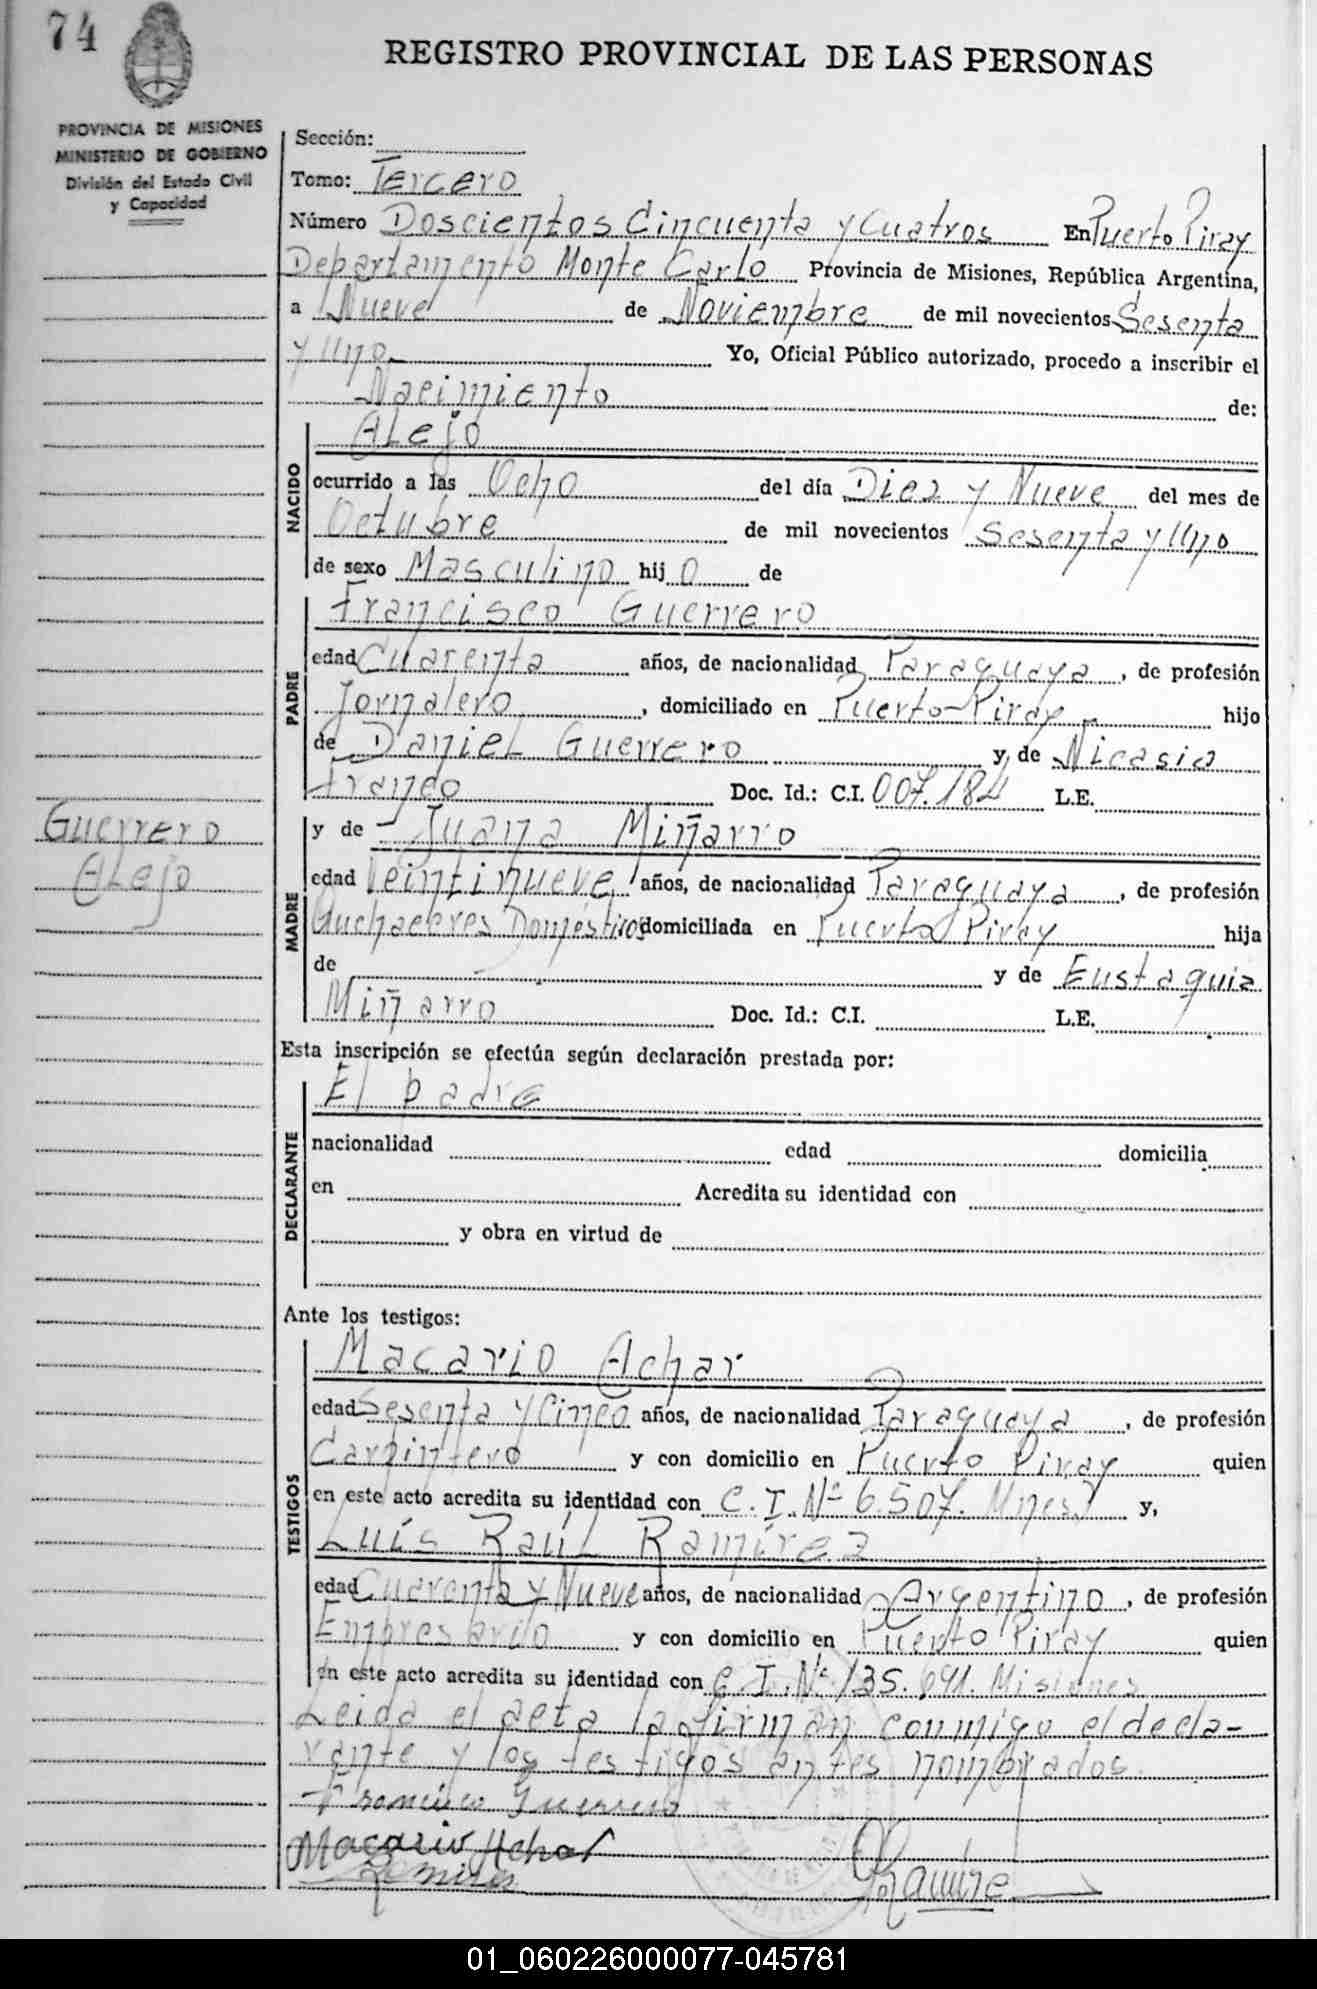 74
REGISTRO PROVINCIAL DE LAS PERSONAS
PROVINCIA DE MISIONES
MINISTERIO DE GOBIERNO
División del Estado Civil
y Capacidad
Sección:
Tomo: Tercero
Número Doscientos Cincuenta y Cuatros En Puerto Piray
Departamento Monte Carlo Provincia de Misiones, República Argentina,
a Nueve de Noviembre de mil novecientos Sesenta
y Uno Yo, Oficial Público autorizado, procedo a inscribir el
Nacimiento de:
NACIDO
Alejo
ocurrido a las Ocho del día Diez y Nueve del mes de
Octubre de mil novecientos Sesenta y Uno
de sexo Masculino hijo de
PADRE
Francisco Guerrero
edad Cuarenta años, de nacionalidad Paraguaya, de profesión
Jornalero, domiciliado en Puerto Piray hijo
de Daniel Guerrero y de Nicasia
Franco Doc. Id.: C.I. 007.184 L.E.
Guerrero
Alejo
MADRE
y de Juana Miñarro
edad Veintinueve años, de nacionalidad Paraguaya, de profesión
Quehaceres Domésticos domiciliada en Puerto Piray hija
de y de Eustaquia
Miñarro Doc. Id.: C.I. L.E.
Esta inscripción se efectúa según declaración prestada por:
DECLARANTE
El padre
nacionalidad edad domicilia
en Acredita su identidad con
y obra en virtud de
Ante los testigos:
TESTIGOS
Macario Achar
edad Sesenta y Cinco años, de nacionalidad Paraguaya, de profesión
Carpintero y con domicilio en Puerto Piray quien
en este acto acredita su identidad con C.I. Nº 6.507. Mnes. y,
Luís Raúl Ramírez
edad Cuarenta y Nueve años, de nacionalidad Argentino, de profesión
Empresario y con domicilio en Puerto Piray quien
en este acto acredita su identidad con C.I. Nº 135.691. Misiones
Leida el acta la firman conmigo el decla-
rante y los testigos antes nombrados.
Francisco Guerrero
Macario Achar
Ramirez
01_060226000077-045781